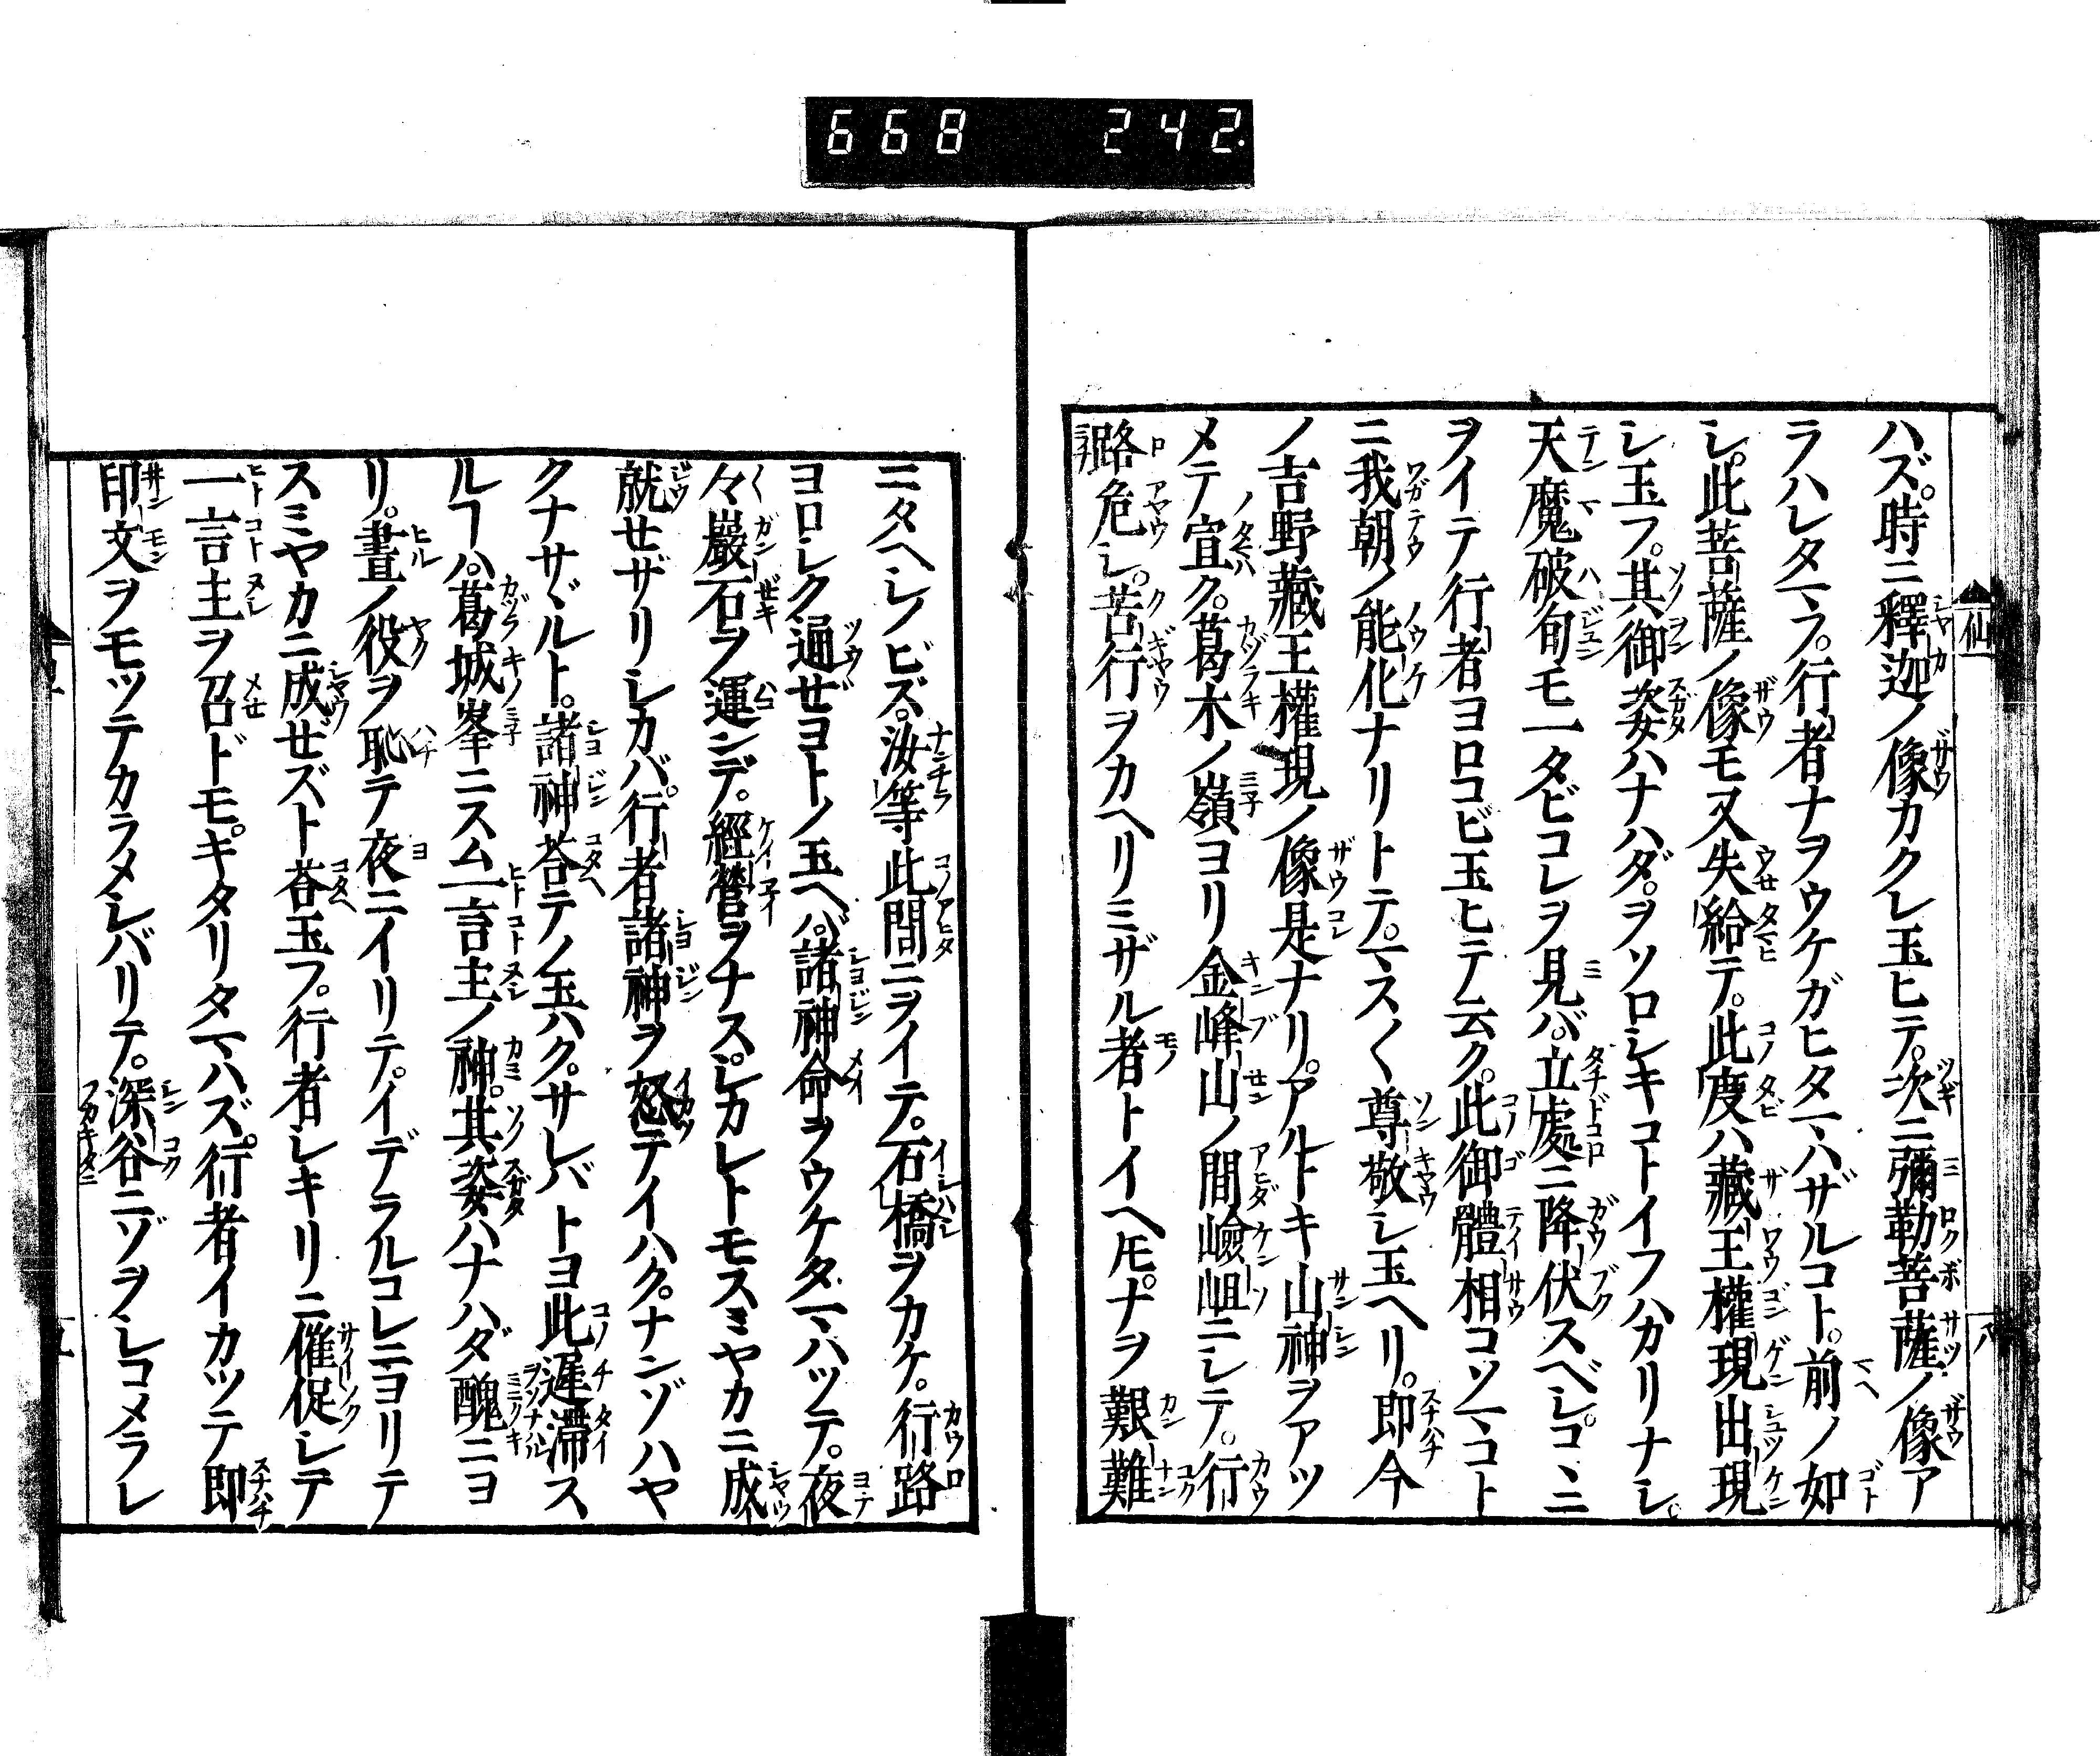 668 242.
仙
ハズ。時ニ釋迦ノ像カクレ玉ヒテ。次ニ彌勒菩薩ノ像ア
ラハレタマフ。行者ナヲウケガヒタマハザルコト。前ノ如
シ。此菩薩ノ像モ又失給テ。此度ハ藏王權現出現
シ玉フ。其御姿ハナハダ。ヲソロシキコトイフハカリナシ。
天魔破旬モ一タビコレヲ見バ。立處ニ降伏スベシ。コヽニ
ヲイテ行者ヨロコビ玉ヒテ云ク。此御體相コソマコト
ニ我朝ノ能化ナリトテ。マス〱尊敬シ玉ヘリ。即今
ノ吉野藏王權現ノ像是ナリ。アルトキ山神ヲアツ
メテ宣ク。葛木ノ嶺ヨリ金峰山ノ間嶮岨ニシテ。行
路危シ。苦行ヲカヘリミザル者トイヘ𪜈。ナヲ艱難
ニタヘシノビズ。汝等此間ニヲイテ。石橋ヲカケ。行路
ヨロシク通ゼヨトノ玉ヘバ。諸神命ヲウケタマハツテ。夜
々巖石ヲ運ンデ。經營ヲナス。シカレトモスミヤカニ成
就セザリシカバ。行者諸神ヲ怒テイハク。ナンゾハヤ
クナサヾルト。諸神荅テノ玉ハク。サレバトヨ此遲滯ス
ルヿハ。葛城峯ニスム一言主ノ神。其姿ハナハダ醜ニヨ
リ。晝ノ役ヲ恥テ夜ニイリテ。イデラルコレニヨリテ
スミヤカニ成ゼズト荅玉フ。行者シキリニ催促シテ
一言主ヲ召ドモ。キタリタマハズ。行者イカツテ即
印文ヲモツテカラメシバリテ。深谷ニゾヲシコメラレ